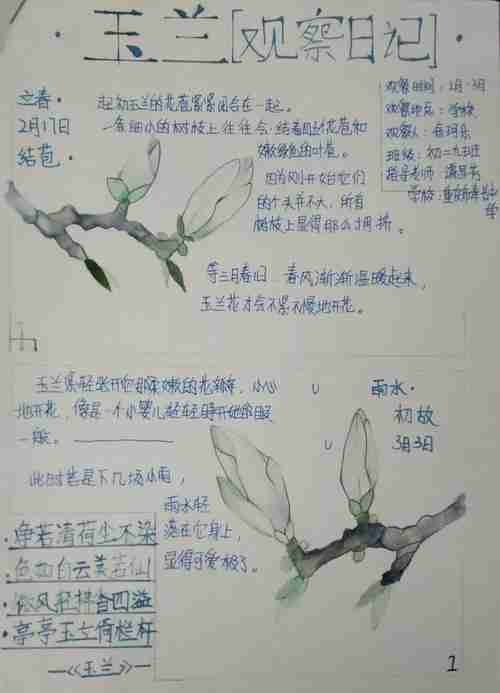 ·玉兰[观察日记]·
立春·
2月17日
结苞·
起初玉兰的花苞紧紧闭合在一起。
一条细小的树枝上往往会结着四、五个花苞和
嫩绿色的叶苞。
因为刚开始它们
的个头并不大,所有
树枝上显得那么拥挤。
等三月春归,春风渐渐温暖起来,
玉兰花才会不紧不慢地开花。
观察时间:2月-3月
观察地点:学校
观察人:
班级:初二九班
指导老师:
学校:重庆
玉兰轻轻张开它那柔嫩的花瓣,
地开花,像是一个小婴儿轻轻睁开她的眼
一般。
雨水·
初放
3月3日
此时若是下几场小雨,
雨水轻
落在它身上,
显得可爱极了。
·净若清荷尘不染
·色如白云美若仙
·微风轻拌香四溢
·亭亭玉立倚栏杆
—《玉兰》—
1